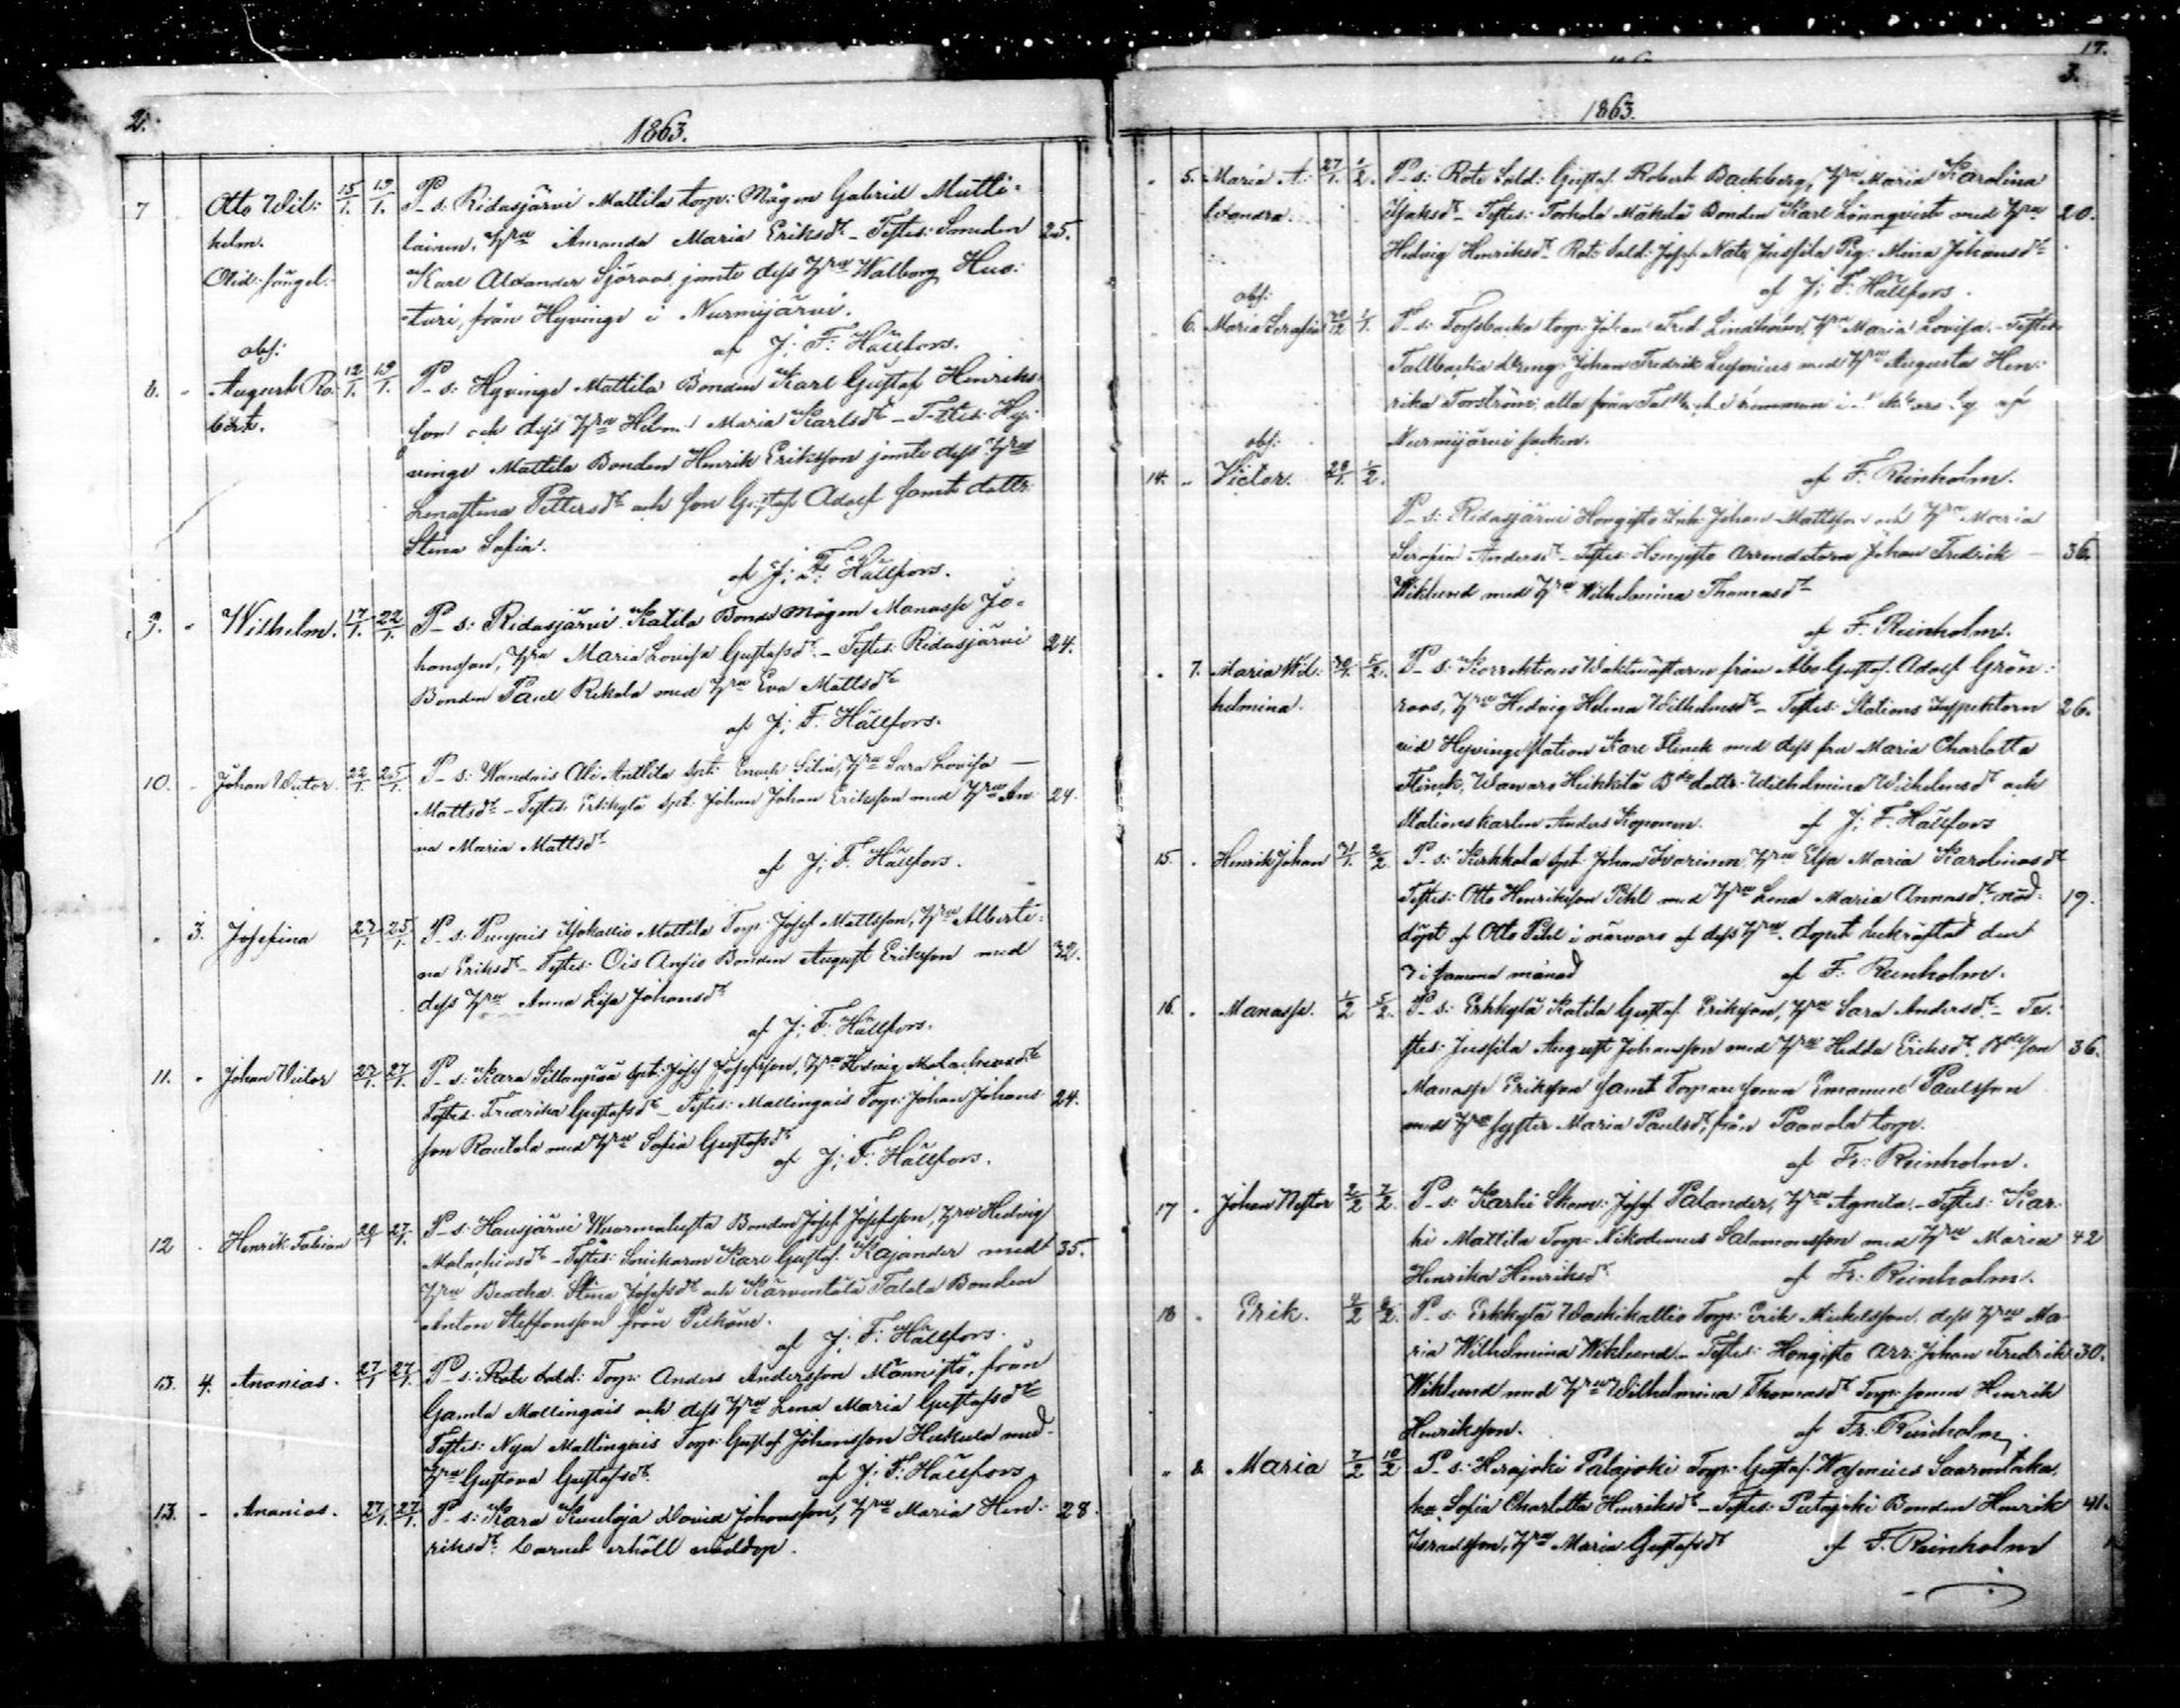 2.
1863.
7 Otto Wil: 15/1. 19/1. P_ s: Ridasjärvi Mattila torp: Mågen Gabriel Mutti-
helm. lainen, Hru Amanda Maria Eriksdr _ Testes: Smeden 25.
Oläd: fångel. Karl Alexander Sjöroos jemte dess Hru Walborg Huo:
turi, från Hyvinge i Nurmijärvi.
obs: af J. F. Hällfors.
8. August Ro: 12/1. 19/1. P_ s: Hyvinge Mattila Bonden Karl Gustaf Henriks
bert. son och dess Hru Helena Maria Karlsdr _ Testes: Hy:
vinge Mattila Bonden Henrik Eriksson jemte dess Hru
Lenastina Pettersdr och son Gustaf Adolf samt dottr
Stina Sofia.
af J. F. Hällfors.
9. Wilhelm. 17/1. 22/1. P_ s: Ridasjärvi Katila Bonde mågen Manasse Jo-
hansson, Hru Maria Lovisa Gustafsdr. _ Testes: Ridasjärvi 24.
Bonden Paul Rekola med Hru Eva Mattsdr
af J. F. Hällfors.
10. Johan Victor. 22/1. 25/1. P_ s: Wandais Ali Anttila Enoch Silin, Hru Sara Lovisa —
Mattsdr _ Testes: Erkkylä Johan Johan Eriksson med Hru An- 24.
na Maria Mattsdr
af J. F. Hällfors.
3. Josefina 27/1 25/1. P_ s: Kjokallio Mattila Torp: Josef Mattsson, Hru Alberti-
na Eriksdr _ Testes: Ois Ansio Bonden August Eriksson med 32.
dess Hru Anna Lisa Johansdr
af J. F. Hällfors.
11. Johan Victor 27/1. 27/1. P_ s: Kara Sillanpää Josef Josefsson, Hru Hedvig Malachiasdr
Testes: Fredrika Gustafsdr _ Testes: Mallingais Torp: Johan Johans 24.
son Rautala med Hru Sofia Gustafsdr
af J. F. Hällfors.
12 Henrik Fabian 20/1 27/1. P_ s: Hausjärvi Wuormalusta Bonden Josef Josefsson, Hru Hedvig
Malachiasdr _ Testes: Karl Gustaf Kajander med 35.
Hru Beatha Stina Josefsdr och Karventälä Talola Bonden
Anton Steffansson från
af J. F. Hällfors.
13. 4. Ananias. 27/1 27/1. P_ s: Rote Sold: Torp: Anders Andersson Männistö, från
Gamla Mallingais och dess Hru Lena Maria Gustafsdr
Testes: Nya Mallingais Torp: Gustaf Johansson med
Hru Gustava Gustafsdr. af J. F. Hällfors
13. Ananias. 27/1. 27/1. P_ s: Kara Kuuloja David Johansson, Hru Maria Hen: 28.
riksdr. Barnet erhöll nöddop.
17.
3.
1863.
5. Maria A: 27/1. 2/2. P_ s: Rote Sold: Gustaf Robert Backberg, Hru Maria Karolina
lexandra. Isaksdr _ Testes: Torhola Mäkelä Bonden Karl Lönnqvist med Hru 20.
Hedvig Henriksdr Rote Sold: Josef Jussila Pig: Mina Johansdr
obs: af J. F. Hällfors.
6. Maria Serafia 1/1. P_ s: Torsbacka torp: Johan Fred. Lindholm, Hru Maria Lovisa. _ Testes:
Tallbacka dräng: Johan Fredrik med Hru Augusta Hen:
rika Forström, alla från
obs: Nurmijärvi socken.
14. Victor. 28/1. 1/2. af F. Reinholm.
P_ s: Ridasjärvi Hongisto Inh: Johan Mattsson och Hru Maria
Serafia Andersdr _ Testes: Hongisto Arrendatorn Johan Fredrik — 36.
Wiklund med Hru Wilhelmina Thomasdr
af F. Reinholm.
7. Maria Wil: 5/2. P_ s: Korrektions Waktmästaren från Åbo Gustaf Adolf Grön-
helmina. roos, Hru Hedvig Helena Wilhelmsdr _ Testes: Stations Inspektorn 26.
vid Hyvinge station Karl Flinck med dess fru Maria Charlotta
Flinck, Heikkilä dottr. Wilhelmina Wilhelmsdr och
Stationskarlen Anders Koponen. af J. F. Hällfors
15. Henrik Johan 31/1. 2/2. P_ s: Kirkkola Johan Ivarinen, Hru Elsa Maria Karolinasdr
Testes: Otto Henriksson Pihl med Hru Lena Maria Annasdr nöd- 19.
döpt af Otto Pihl i närvaro af dess Hru. dopet bekräftad den
7 i samma månad af F. Reinholm.
16. Manasse. 1/2 5/2. P_ s: Erkkylä Katila Gustaf Eriksson, Hru Sara Andersdr. _ Te-
stes: Jussila August Johansson med Hru Hedda Eriksdr. son 36.
Manasse Eriksson samt Torparesonen Emanuel Paulsson
med syster Maria Paulsdr, från Paavola torp.
af Fr: Reinholm.
17 Johan Nestor 2/2 7/2. P_ s: Karhi Skom: Josef Palander, Hru Agneta. _ Testes: Kar-
hi Mattila Torp: Nikodemus Salomonsson med Hru Maria 42
Henrika Henriksdr af Fr: Reinholm.
18 Erik. 4/2 8/2. P_ s: Erkkylä Waskikallio Torp: Erik Mickelsson, dess Hru Ma-
ria Wilhelmina Wiklund. _ Testes: Hongisto Arr: Johan Fredrik 30.
Wiklund med Hru Wilhelmina Thomasdr Torp: sonen Henrik
Henriksson. af Fr. Reinholm.
8. Maria 7/2 10/2 P_ s: Herajoki Palajoki Torp: Gustaf Wasenius
Sofia Charlotta Henriksdr _ Testes: Bonden Henrik 41.
Israelsson, Hru Maria Gustafsdr af F. Reinholm